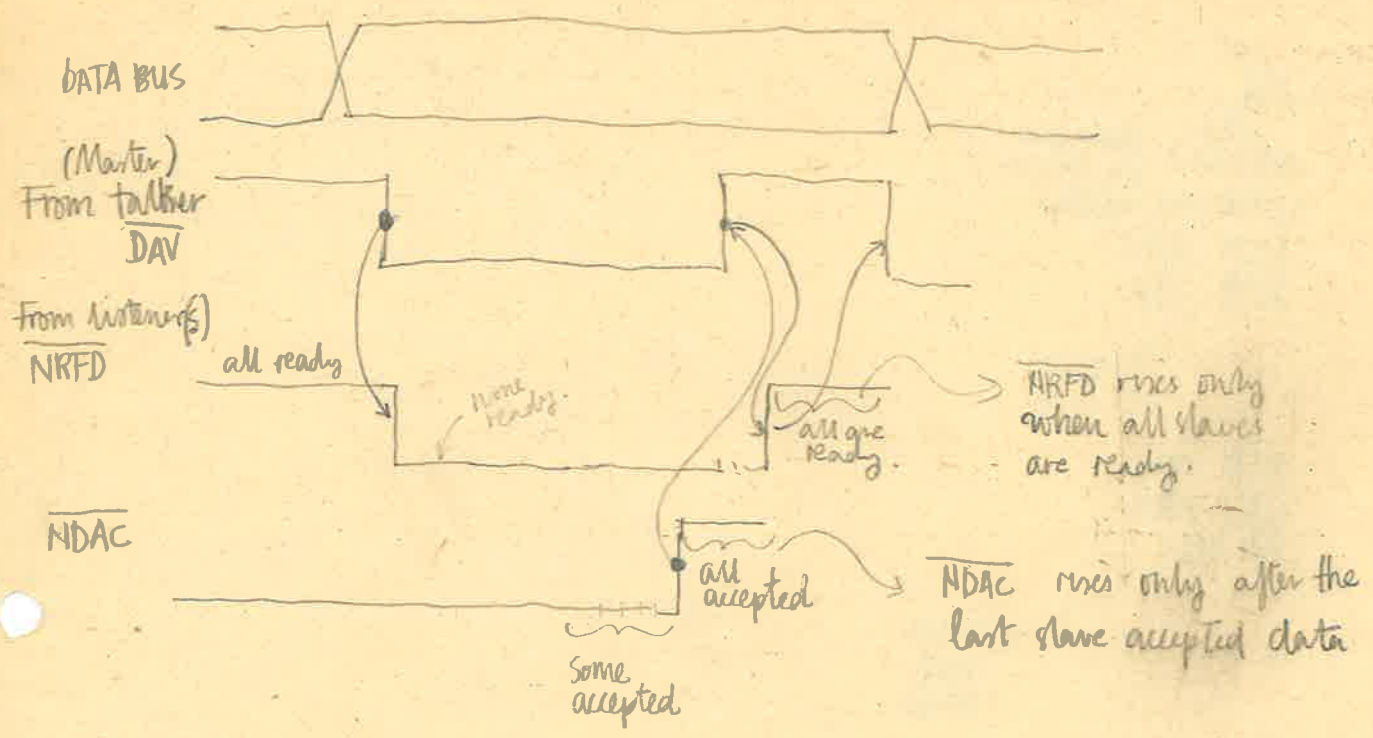 DATA BUS
(Master)
From talker
DAV
From listener(s)
NRFD
all ready
none
ready.
all are
ready.
NRFD rises only
when all slaves
are ready.
NDAC
all
accepted
NDAC rises only after the
last slave accepted data
Some
accepted